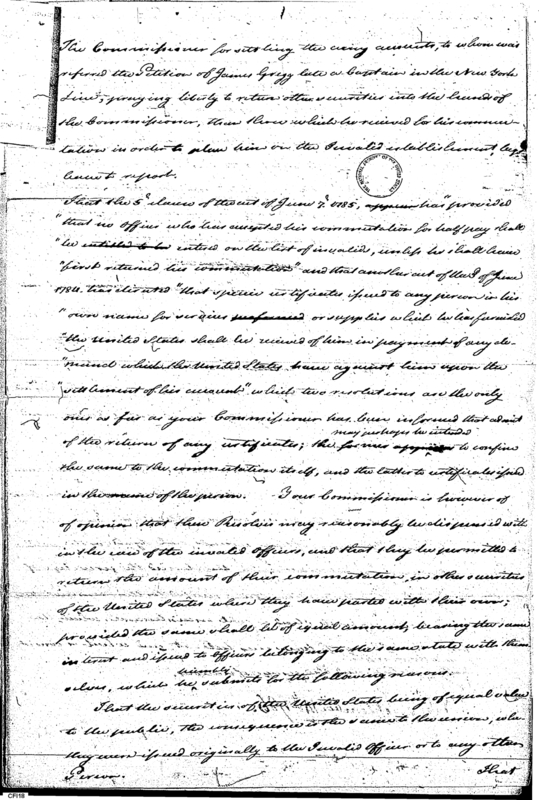 1
The Commissioner for settling the army accounts, to whom was
referred the Petition of James Gregg late a Captain in the New York
Line; praying liberty to return other securities into the hands of
the Commissioner, than those which he received for his commu-
tation in order to place him on the Invalid establishment, begs
leave to report.
That the 5th clause of the act of June 7th 1785, has "provided
"that no Officer who has accepted his commutation for half pay shall
"be entitled to be entered on the list of invalids, unless he shall have
"first returned his commutation" and that another act of the 3d of June
1784. has declared "that specie certificates issued to any person in his
"own name for services performed or supplies which he has furnished
"the United States shall be received of him in payment of any de-
"mand which the United States have against him upon the
"settlement of his account" which two resolutions are the only
ones as far as your Commissioner has been informed that admit
may perhaps be intended
of the return of any certificates; the former appears to confine
the same to the commutation itself, and the latter to certificates issued
in the name of the person. Your Commissioner is however of
of opinion that these Resolves may reasonably be dispensed with
in the case of the invalid Officers, and that they be permitted to
return the amount of their commutation, in other securities
of the United States where they have parted with their own;
provided the same shall be of equal amount, bearing the same
interest and issued to Officers belonging to the same state with them
humbly
selves, which he submits for the following reasons.
That the securities of the United States being of equal value
to the public, the consequence is the same to the union, whe
they were issued originally to the Invalid Officer or to any other
Person. That
CFI18